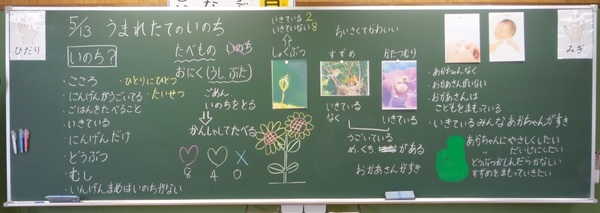 ひだり
5/13 うまれたてのいのち
いのち？
・こころ
・ひとりにひとつ
・にんげんがうごいてる
・たいせつ
・ごはんをたべること
・いきている
・にんげんだけ
・どうぶつ
・むし
・いんげんまめはいのちがない
たべもの いのち
おにく(うし、ぶた)
ごめん
いのちをとる
かんしゃしてたべる
8 4 0
いきている 2
いきていない 8
しょくぶつ
ちいさくてかわいい
すずめ
かたつむり
いきている
なく
いきている
うごいている
め、くち がある
おかあさんがすき
みぎ
・あかちゃんなく
・おかあさんがいない
・おかあさんは
こどもをまもっている
・いきているみんなあかちゃんがすき
あかちゃんにやさしくしたい
〃 だいじにしたい
どうぶつがしんだらかなしい
すずめをまもっていきたい